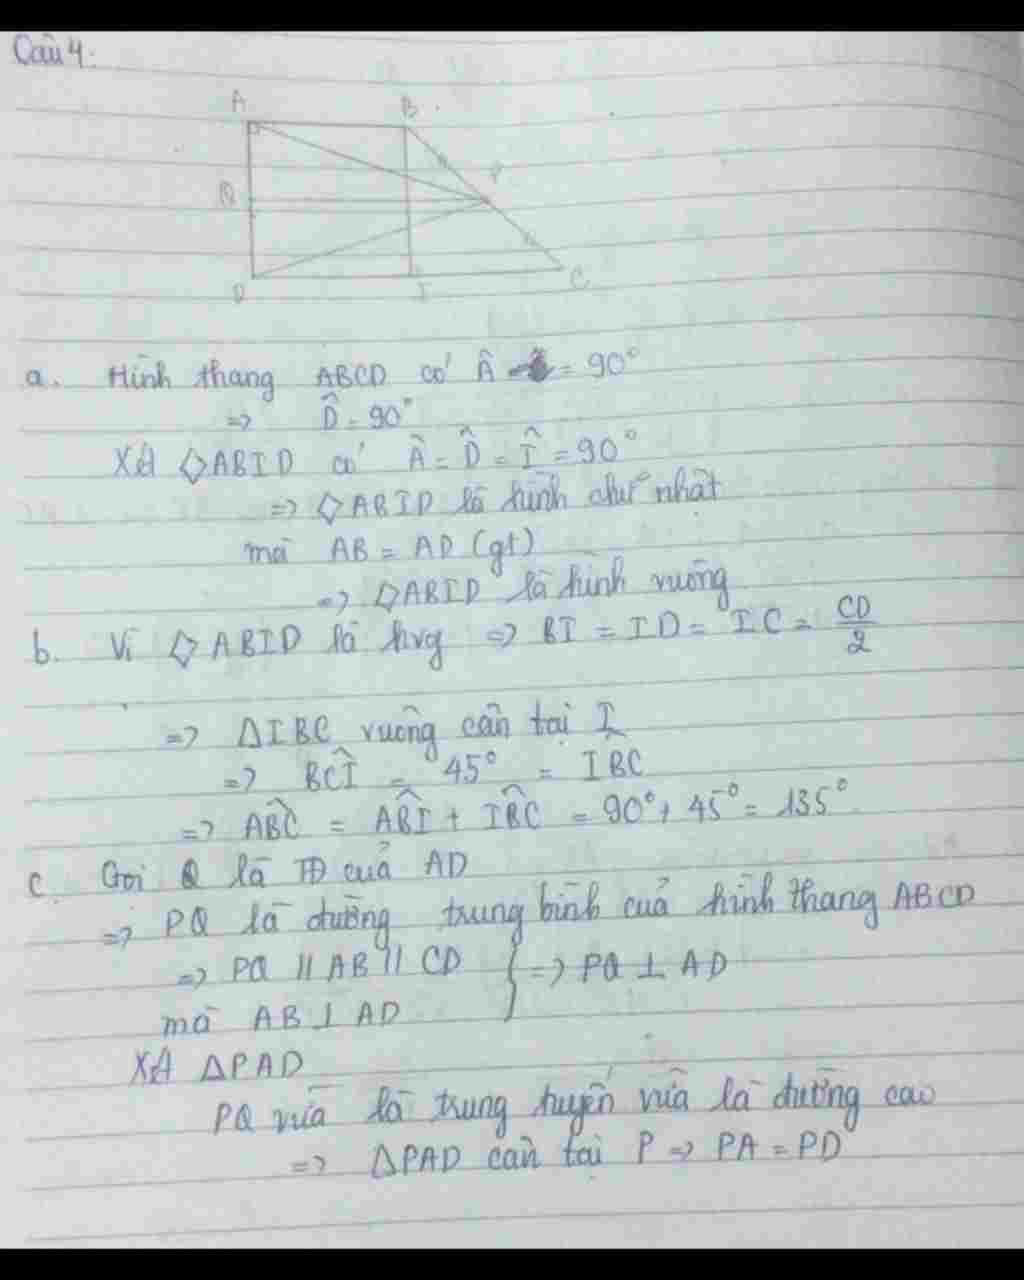 Câu 4.
A B
Q P
D I C
a. Hình thang ABCD có Â = 90°
=> D̂ = 90°
Xét ◇ABID có Â = D̂ = Î = 90°
=> ◇ABID là hình chữ nhật
mà AB = AD (gt)
=> ◇ABID là hình vuông
b. Vì ◇ABID là hvg => BI = ID = IC = CD/2
=> ΔIBC vuông cân tại I
=> BĈI = 45° = IBC
=> AB̂C = AB̂I + IB̂C = 90° + 45° = 135°
c. Gọi Q là TĐ của AD
=> PQ là đường trung bình của hình thang ABCD
=> PQ // AB // CD } => PQ ⊥ AD
mà AB ⊥ AD
Xét ΔPAD
PQ vừa là trung tuyến vừa là đường cao
=> ΔPAD cân tại P => PA = PD